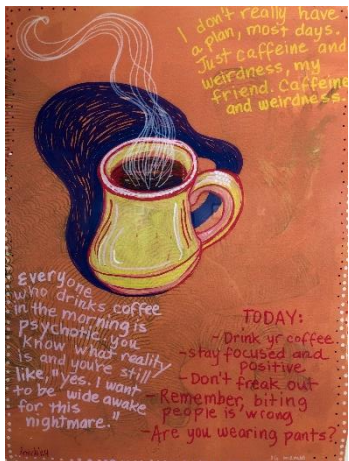 I don't really have
a plan, most days.
Just caffeine and
weirdness, my
friend. Caffeine
and weirdness.
Everyone
who drinks coffee
in the morning is
psychotic, you
know what reality
is and you're still
like, "yes. I want
to be wide awake
for this
nightmare."
TODAY:
- Drink yr coffee
- stay focused and
positive
- Don't freak out
- Remember, biting
people is wrong
- Are you wearing pants?